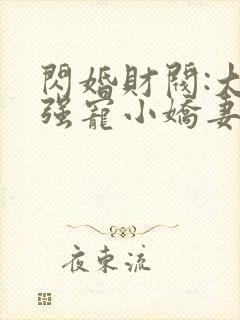 閃婚財閥:大
强寵小嬌妻
夜束流